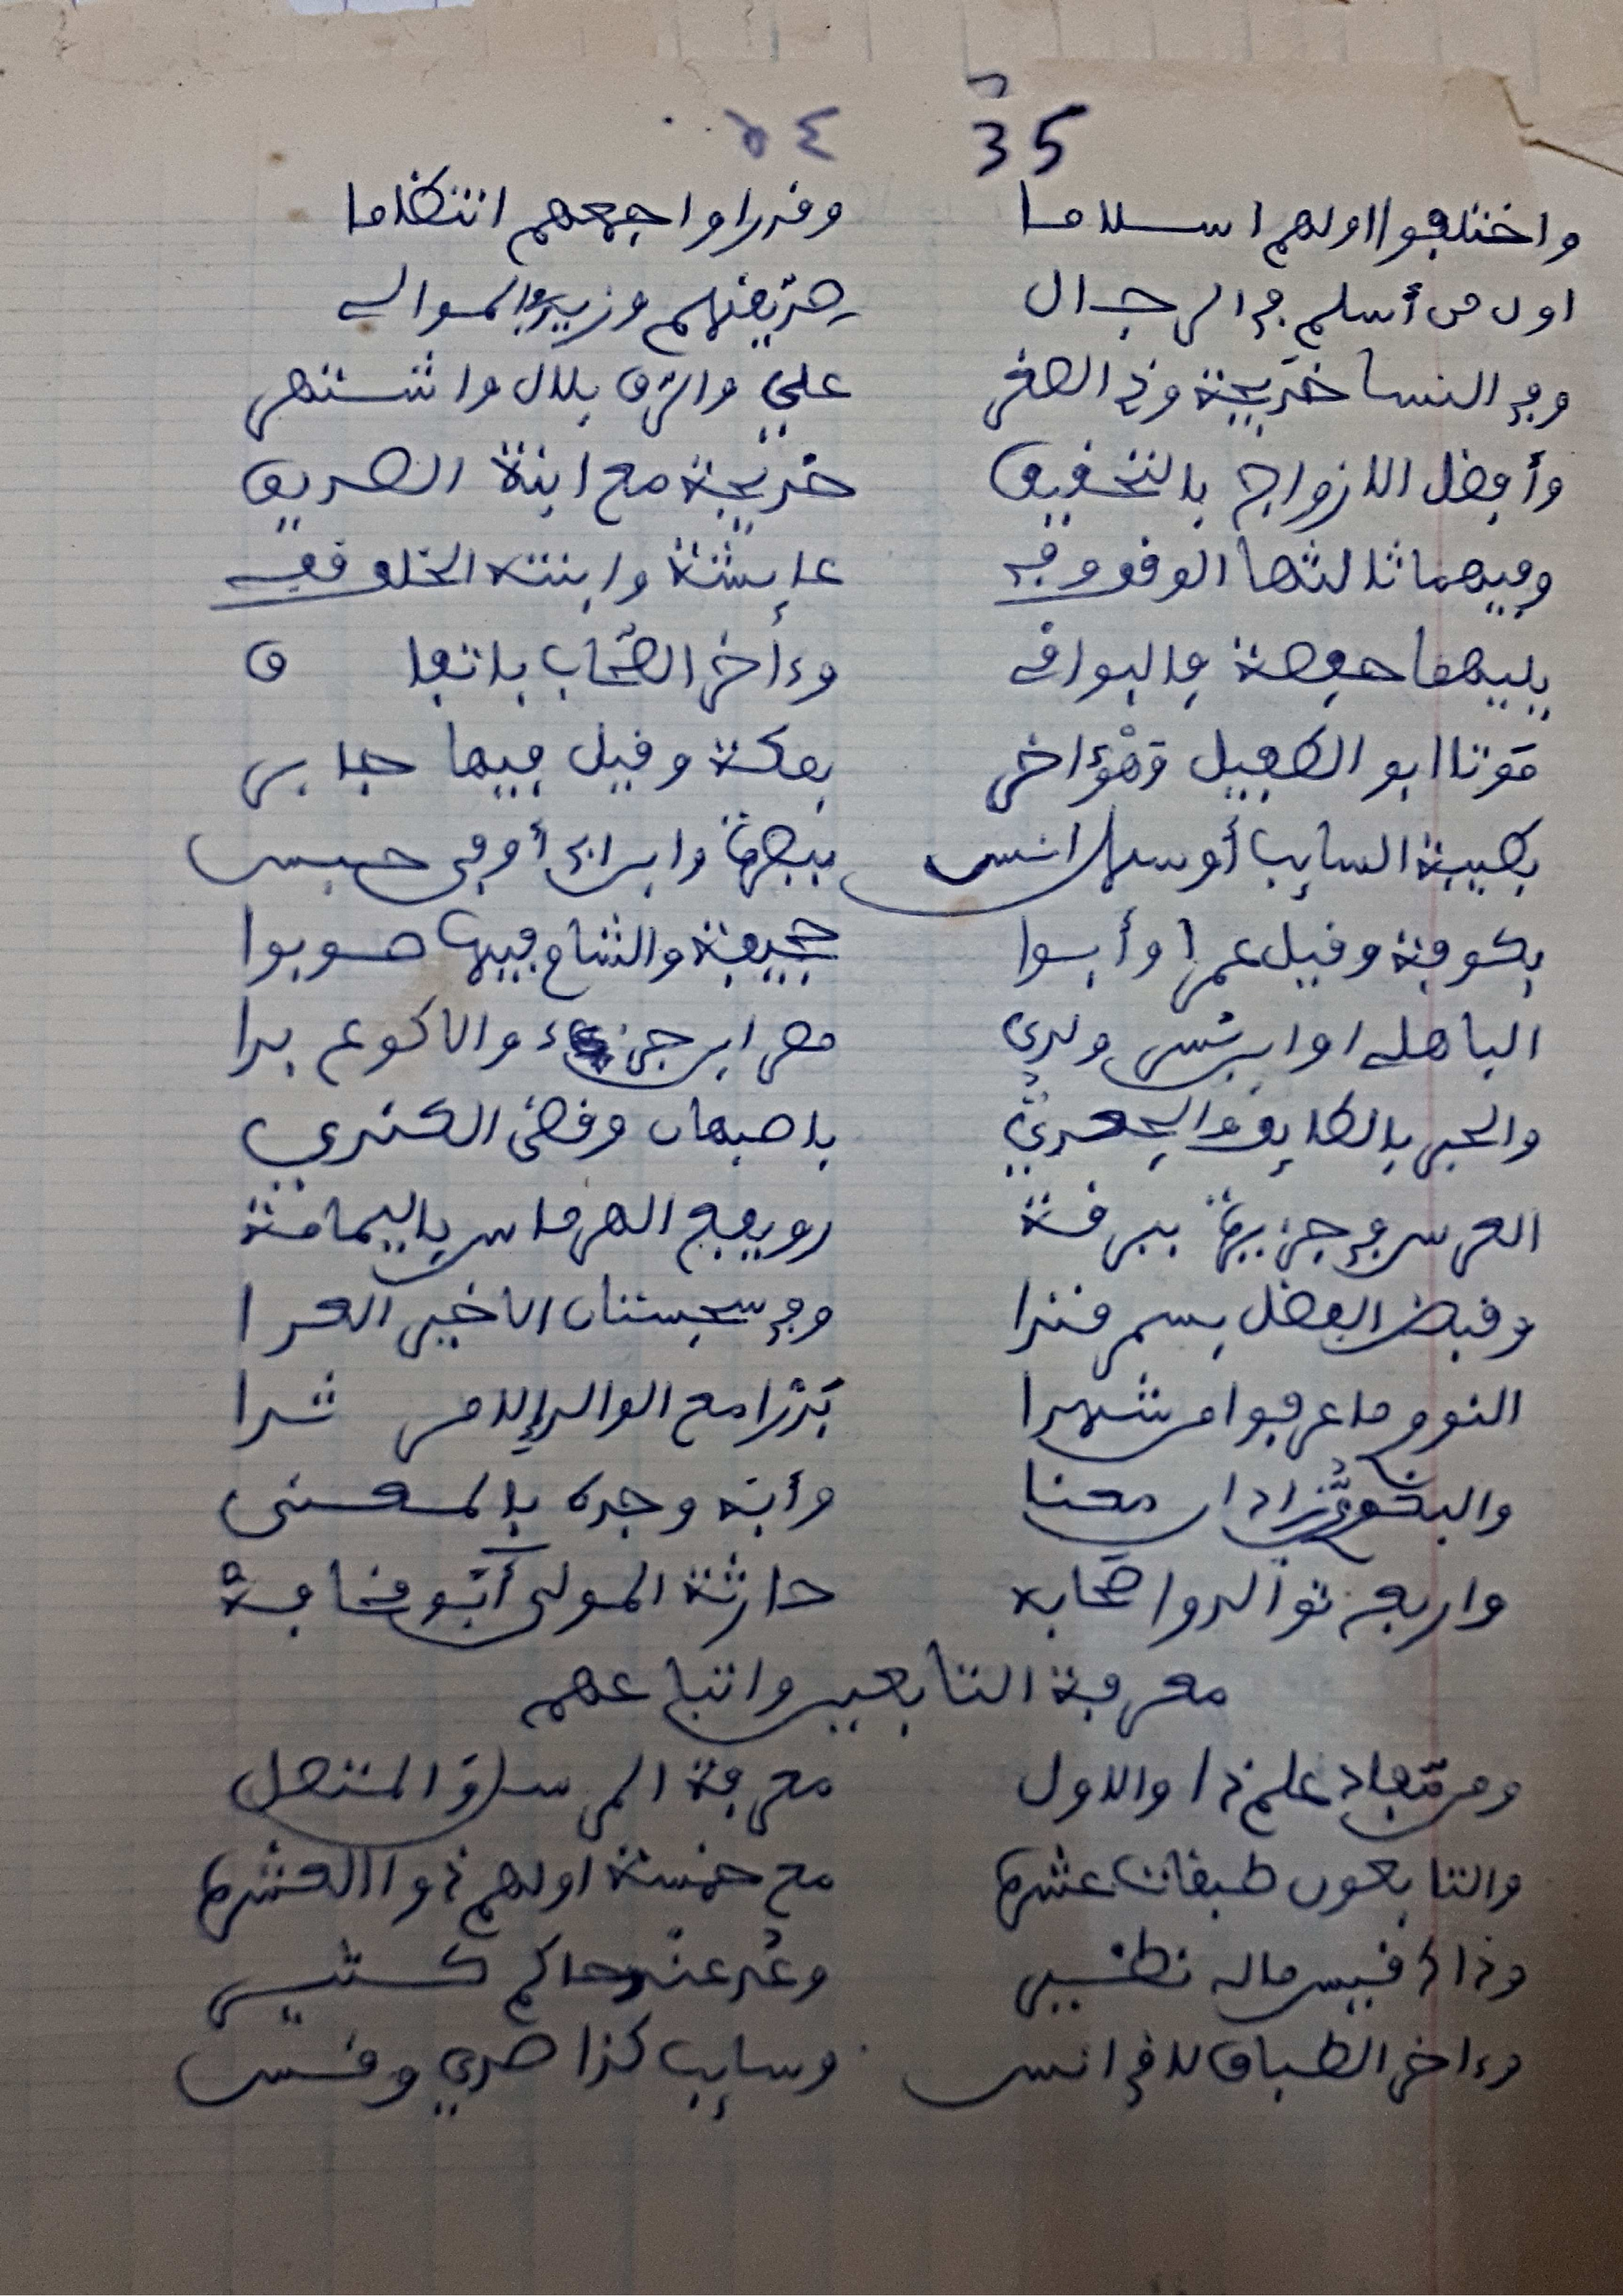 35 ٥٤
واختلفوا اولهم اسلاما وقدرا واجمعهم انتظاما
اول من أسلم في الرجال صديقهم وزيد في الموالي
وفي النسا خديجة وذي الصغر علي والرق بلال واشتهر
وأفضل الازواج بالتحقيق خديجة مع ابنة الصديق
وفيهما ثالثها الوقف وفي عايشة وابنته الخلف قفي
يليهما حفصة فالبواقي وءاخر الصحاب باتفاق
موتا ابو الطفيل وهْو ءاخر بمكة وقيل فيها جابر
بطيبة السايب أو سهل انس ببصرة وابن ابي أوفى حبس
بكوفة وقيل عمرا وأبوا جحيفة والشام فيها صوبوا
الباهلي او ابن بسر ولدى مصر ابن جزء والاكوع بدا
والحبر بالطايف والجعدي باصبهان وقضى الكندي
العرس في جزيرة ببرقة رويفع الهرماس باليمامة
وقبض الفضل بسمرقندا وفي سجستان الاخير العدا
النوو ما عرفوا من شهدا بدرا مع الوالد إلا مرثدا
والبغوي زاد ان معنا وأبه وجده بالمعنى
واربع توالدوا صحابه حارثة المولى أبو قحافهْ
معرفة التابعين واتباعهم
ومن مفاد علم ذا والاول معرفة المرسل والمتصل
والتابعون طبقات عشرة مع خمسة اولهم ذوا العشرة
وذاك قيس ماله نظير وعُد عند حاكم كثير
وءاخر الطباق لاقي انس وسايب كذا صدي وقس